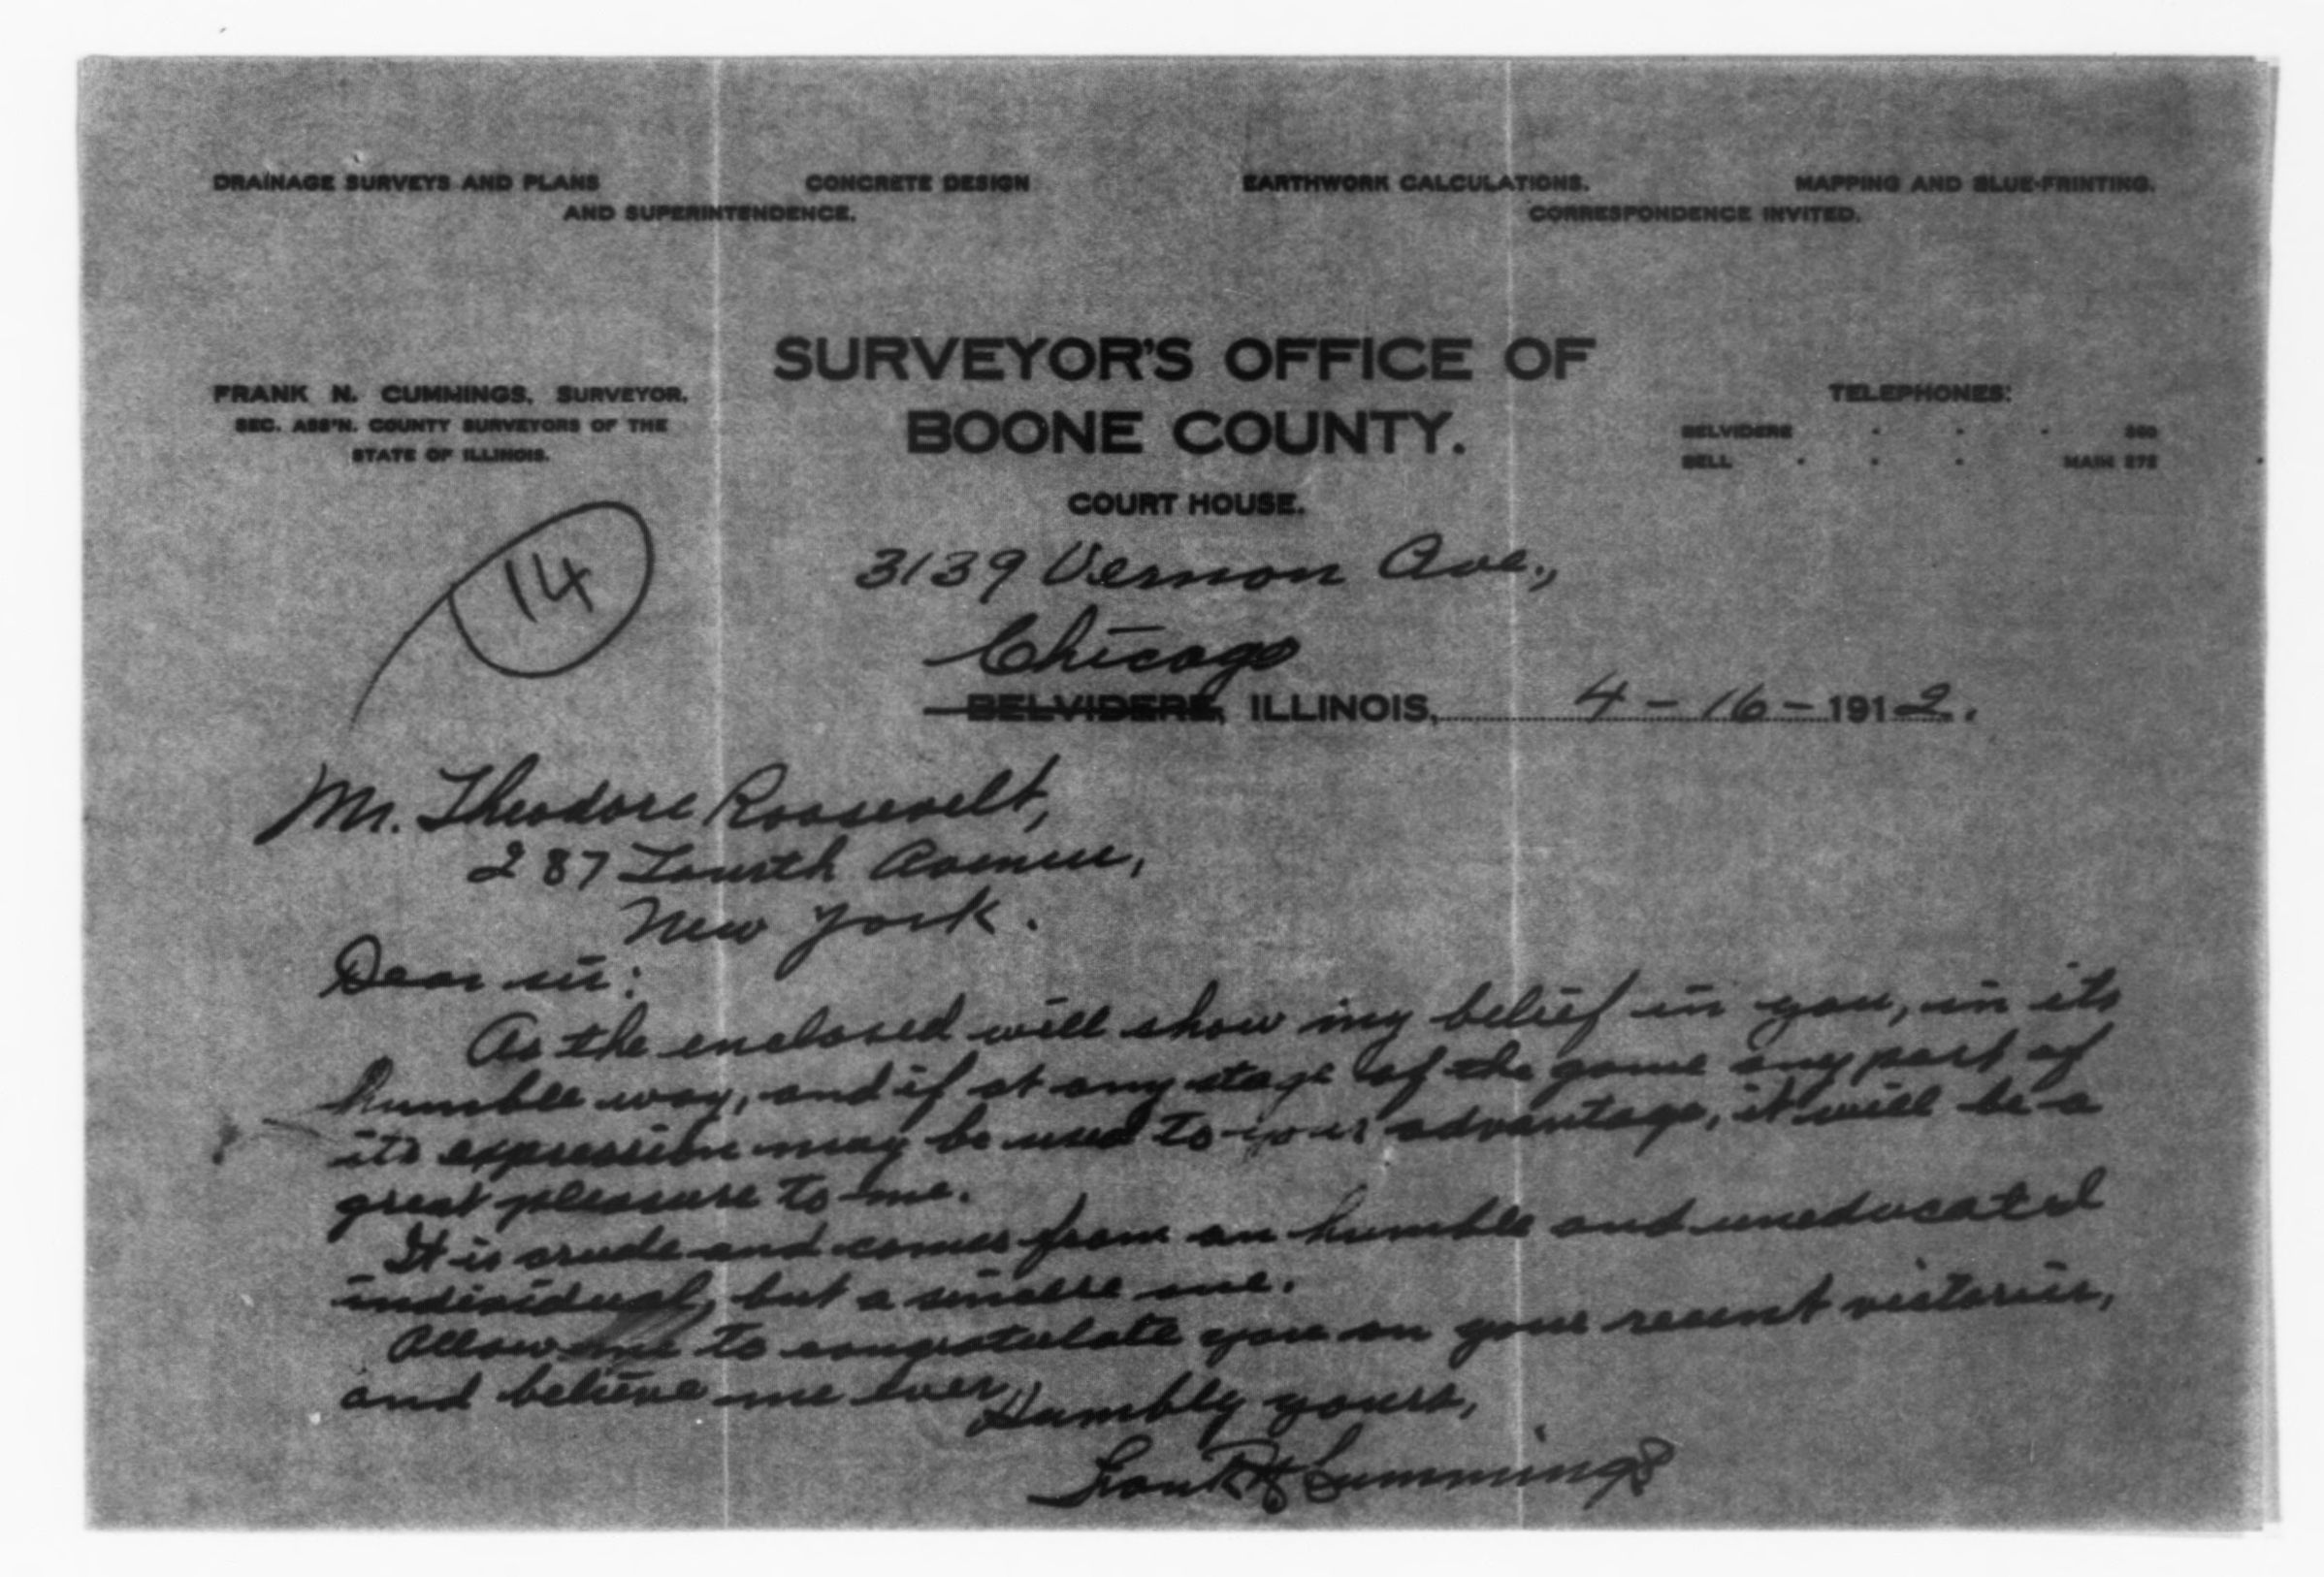 DRAINAGE SURVEYS AND PLANS CONCRETE DESIGN EARTHWORK CALCULATIONS. MAPPING AND BLUE-PRINTING.
AND SUPERINTENDENCE. CORRESPONDENCE INVITED.
SURVEYOR'S OFFICE OF
BOONE COUNTY.
COURT HOUSE.
FRANK N. CUMMINGS, SURVEYOR.
SEC. ASS'N. COUNTY SURVEYORS OF THE
STATE OF ILLINOIS.
TELEPHONES:
BELVIDERE
BELL MAIN 272
14
3139 Vernon Ave.,
Chicago
BELVIDERE, ILLINOIS, 4-16-1912.
Mr. Theodore Roosevelt,
287 Fourth Avenue,
New York.
Dear sir:
As the enclosed will show my belief in you, in its
humble way, and if at any stage of the game any part of
its expression may be used to your advantage, it will be a
great pleasure to me.
It is crude and comes from an humble and uneducated
individual, but a sincere one.
Allow me to congratulate you on your recent victories,
and believe me ever,
Humbly yours,
Frank N Cummings